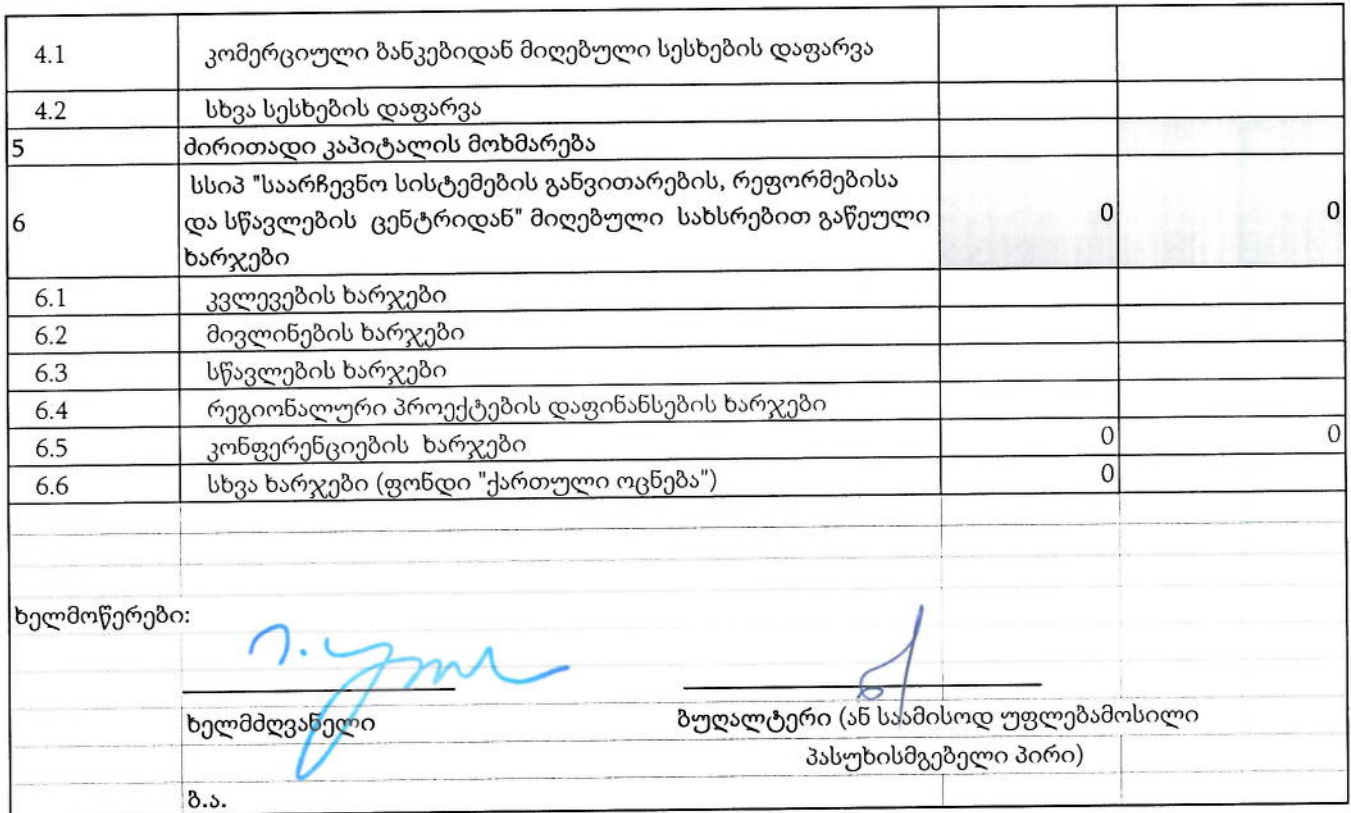 4.1 კომერციული ბანკებიდან მიღებული სესხების დაფარვა
4.2 სხვა სესხების დაფარვა
5 ძირითადი კაპიტალის მოხმარება
სსიპ "საარჩევნო სისტემების განვითარების, რეფორმებისა
6 და სწავლების ცენტრიდან" მიღებული სახსრებით გაწეული 0 0
ხარჯები
6.1 კვლევების ხარჯები
6.2 მივლინების ხარჯები
6.3 სწავლების ხარჯები
6.4 რეგიონალური პროექტების დაფინანსების ხარჯები
6.5 კონფერენციების ხარჯები 0 0
6.6 სხვა ხარჯები (ფონდი "ქართული ოცნება") 0
ხელმოწერები:
ხელმძღვანელი ბუღალტერი (ან საამისოდ უფლებამოსილი
პასუხისმგებელი პირი)
ბ.ა.